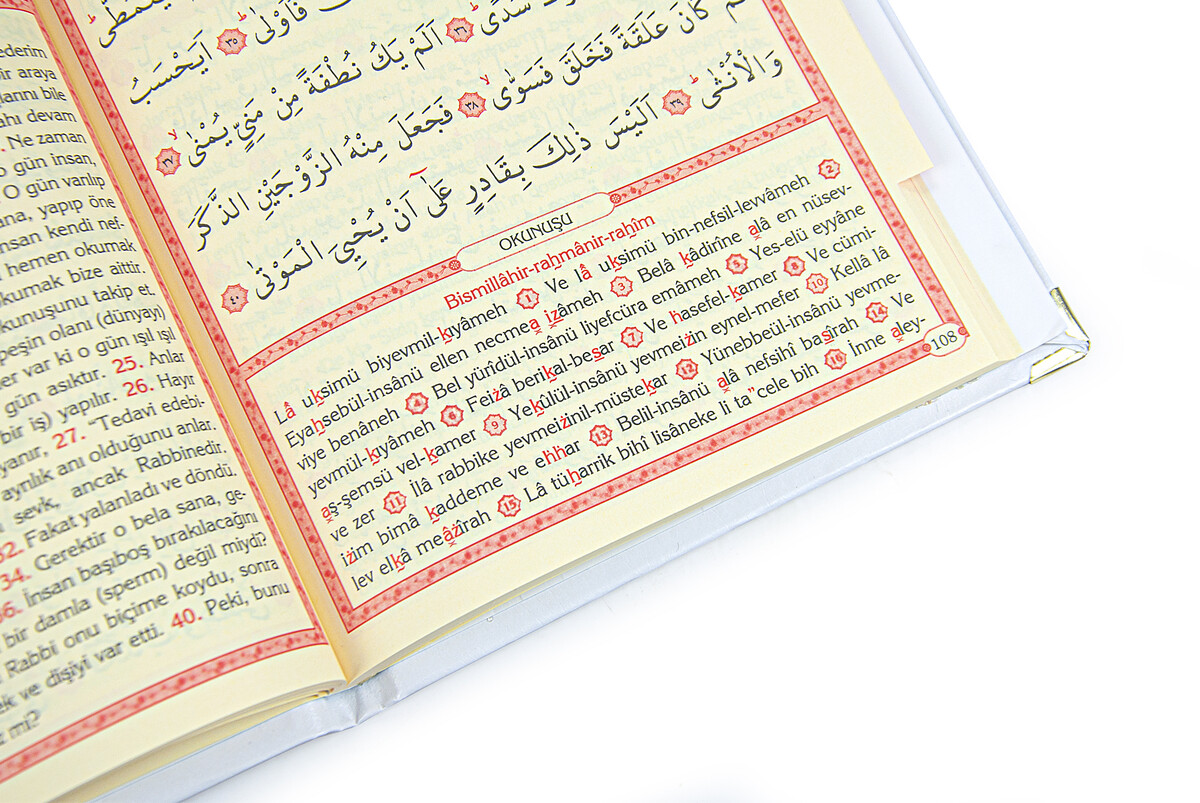 ederim
bir araya
larını bile
ahı devam
. Ne zaman
o gün insan,
O gün varılıp
ana, yapıp öne
nsan kendi nef-
hemen okumak
kumak bize aittir.
kunuşunu takip et.
peşin olanı (dünyayı)
er var ki o gün ışıl ışıl
gün asıktır. 25. Anlar
bir iş) yapılır. 26. Hayır
yanır, 27. “Tedavi edebi-
ayrılık anı olduğunu anlar.
sevk, ancak Rabbinedir.
32. Fakat yalanladı ve döndü.
34. Gerektir o bela sana, ge-
36. İnsan başıboş bırakılacağını
bir damla (sperm) değil miydi?
Rabbi onu biçime koydu, sonra
ek ve dişiyi var etti. 40. Peki, bunu
mi?
يَتَمَطّٰىۜ
فَاَوْلٰىۜ ﴿٣٥﴾ اَيَحْسَبُ
سُدًىۜ ﴿٣٦﴾ اَلَمْ يَكُ نُطْفَةً مِنْ مَنِيٍّ يُمْنٰىۙ ﴿٣٧﴾
كَانَ عَلَقَةً فَخَلَقَ فَسَوّٰىۙ ﴿٣٨﴾ فَجَعَلَ مِنْهُ الزَّوْجَيْنِ الذَّكَرَ
وَالْاُنْثٰىۜ ﴿٣٩﴾ اَلَيْسَ ذٰلِكَ بِقَادِرٍ عَلٰٓى اَنْ يُحْيِيَ الْمَوْتٰى ﴿٤٠﴾
OKUNUŞU
Bismillâhir-raḥmânir-raḥîm
Lâ uḳsimü biyevmil-ḳıyâmeh 1 Ve lâ uḳsimü bin-nefsil-levvâmeh 2
Eyaḥsebül-insânü ellen necmea ızâmeh 3 Belâ ḳâdirîne alâ en nüsev-
viye benâneh 4 Bel yürîdül-insânü liyefcüra emâmeh 5 Yes-elü eyyâne
yevmül-ḳıyâmeh 6 Feiżâ beriḳal-beṣar 7 Ve ḣasefel-ḳamer 8 Ve cümi-
aş-şemsü vel-ḳamer 9 Yeḳûlül-insânü yevmeiżin eynel-mefer 10 Kellâ lâ
ve zer 11 İlâ rabbike yevmeiżinil-müsteḳar 12 Yünebbeül-insânü yevme-
iżim bimâ ḳaddeme ve eḣḣar 13 Belil-insânü alâ nefsihî baṣîrah 14 Ve
lev elḳâ meâżîrah 15 Lâ tüḥarrik bihî lisâneke li ta”cele bih 16 İnne aley-
108